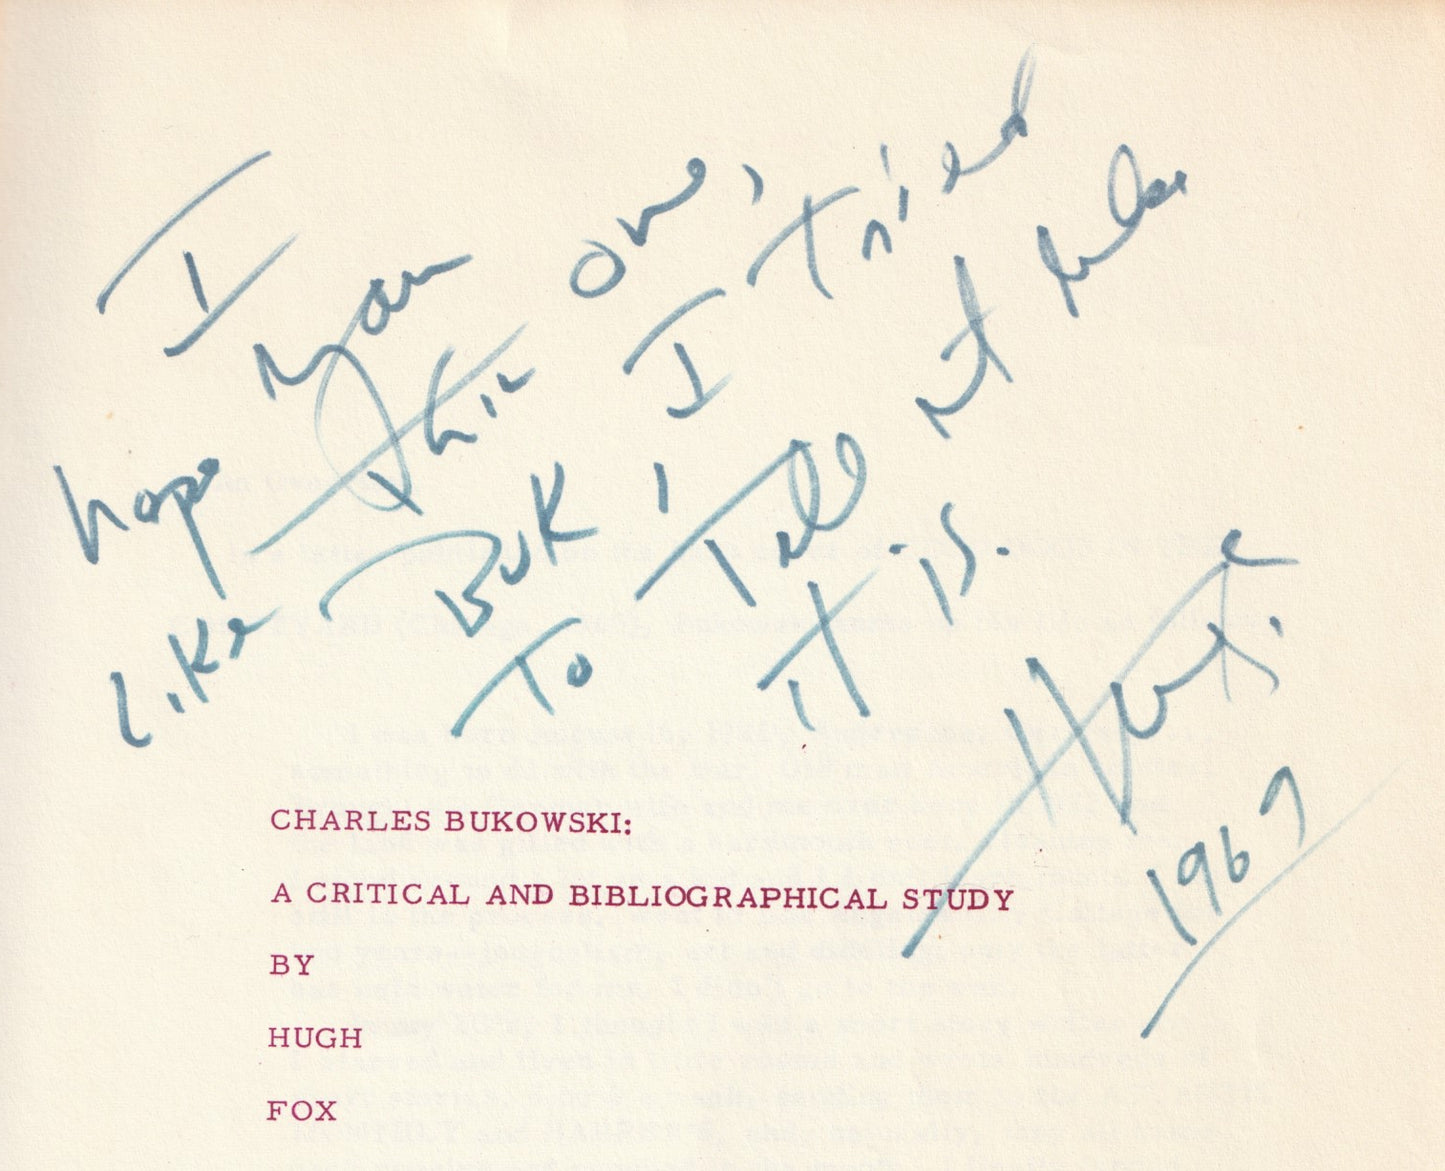 I
hope you
Like this one,
Buk, I tried
To Tell it like
it is.
1967
CHARLES BUKOWSKI:
A CRITICAL AND BIBLIOGRAPHICAL STUDY
BY
HUGH
FOX